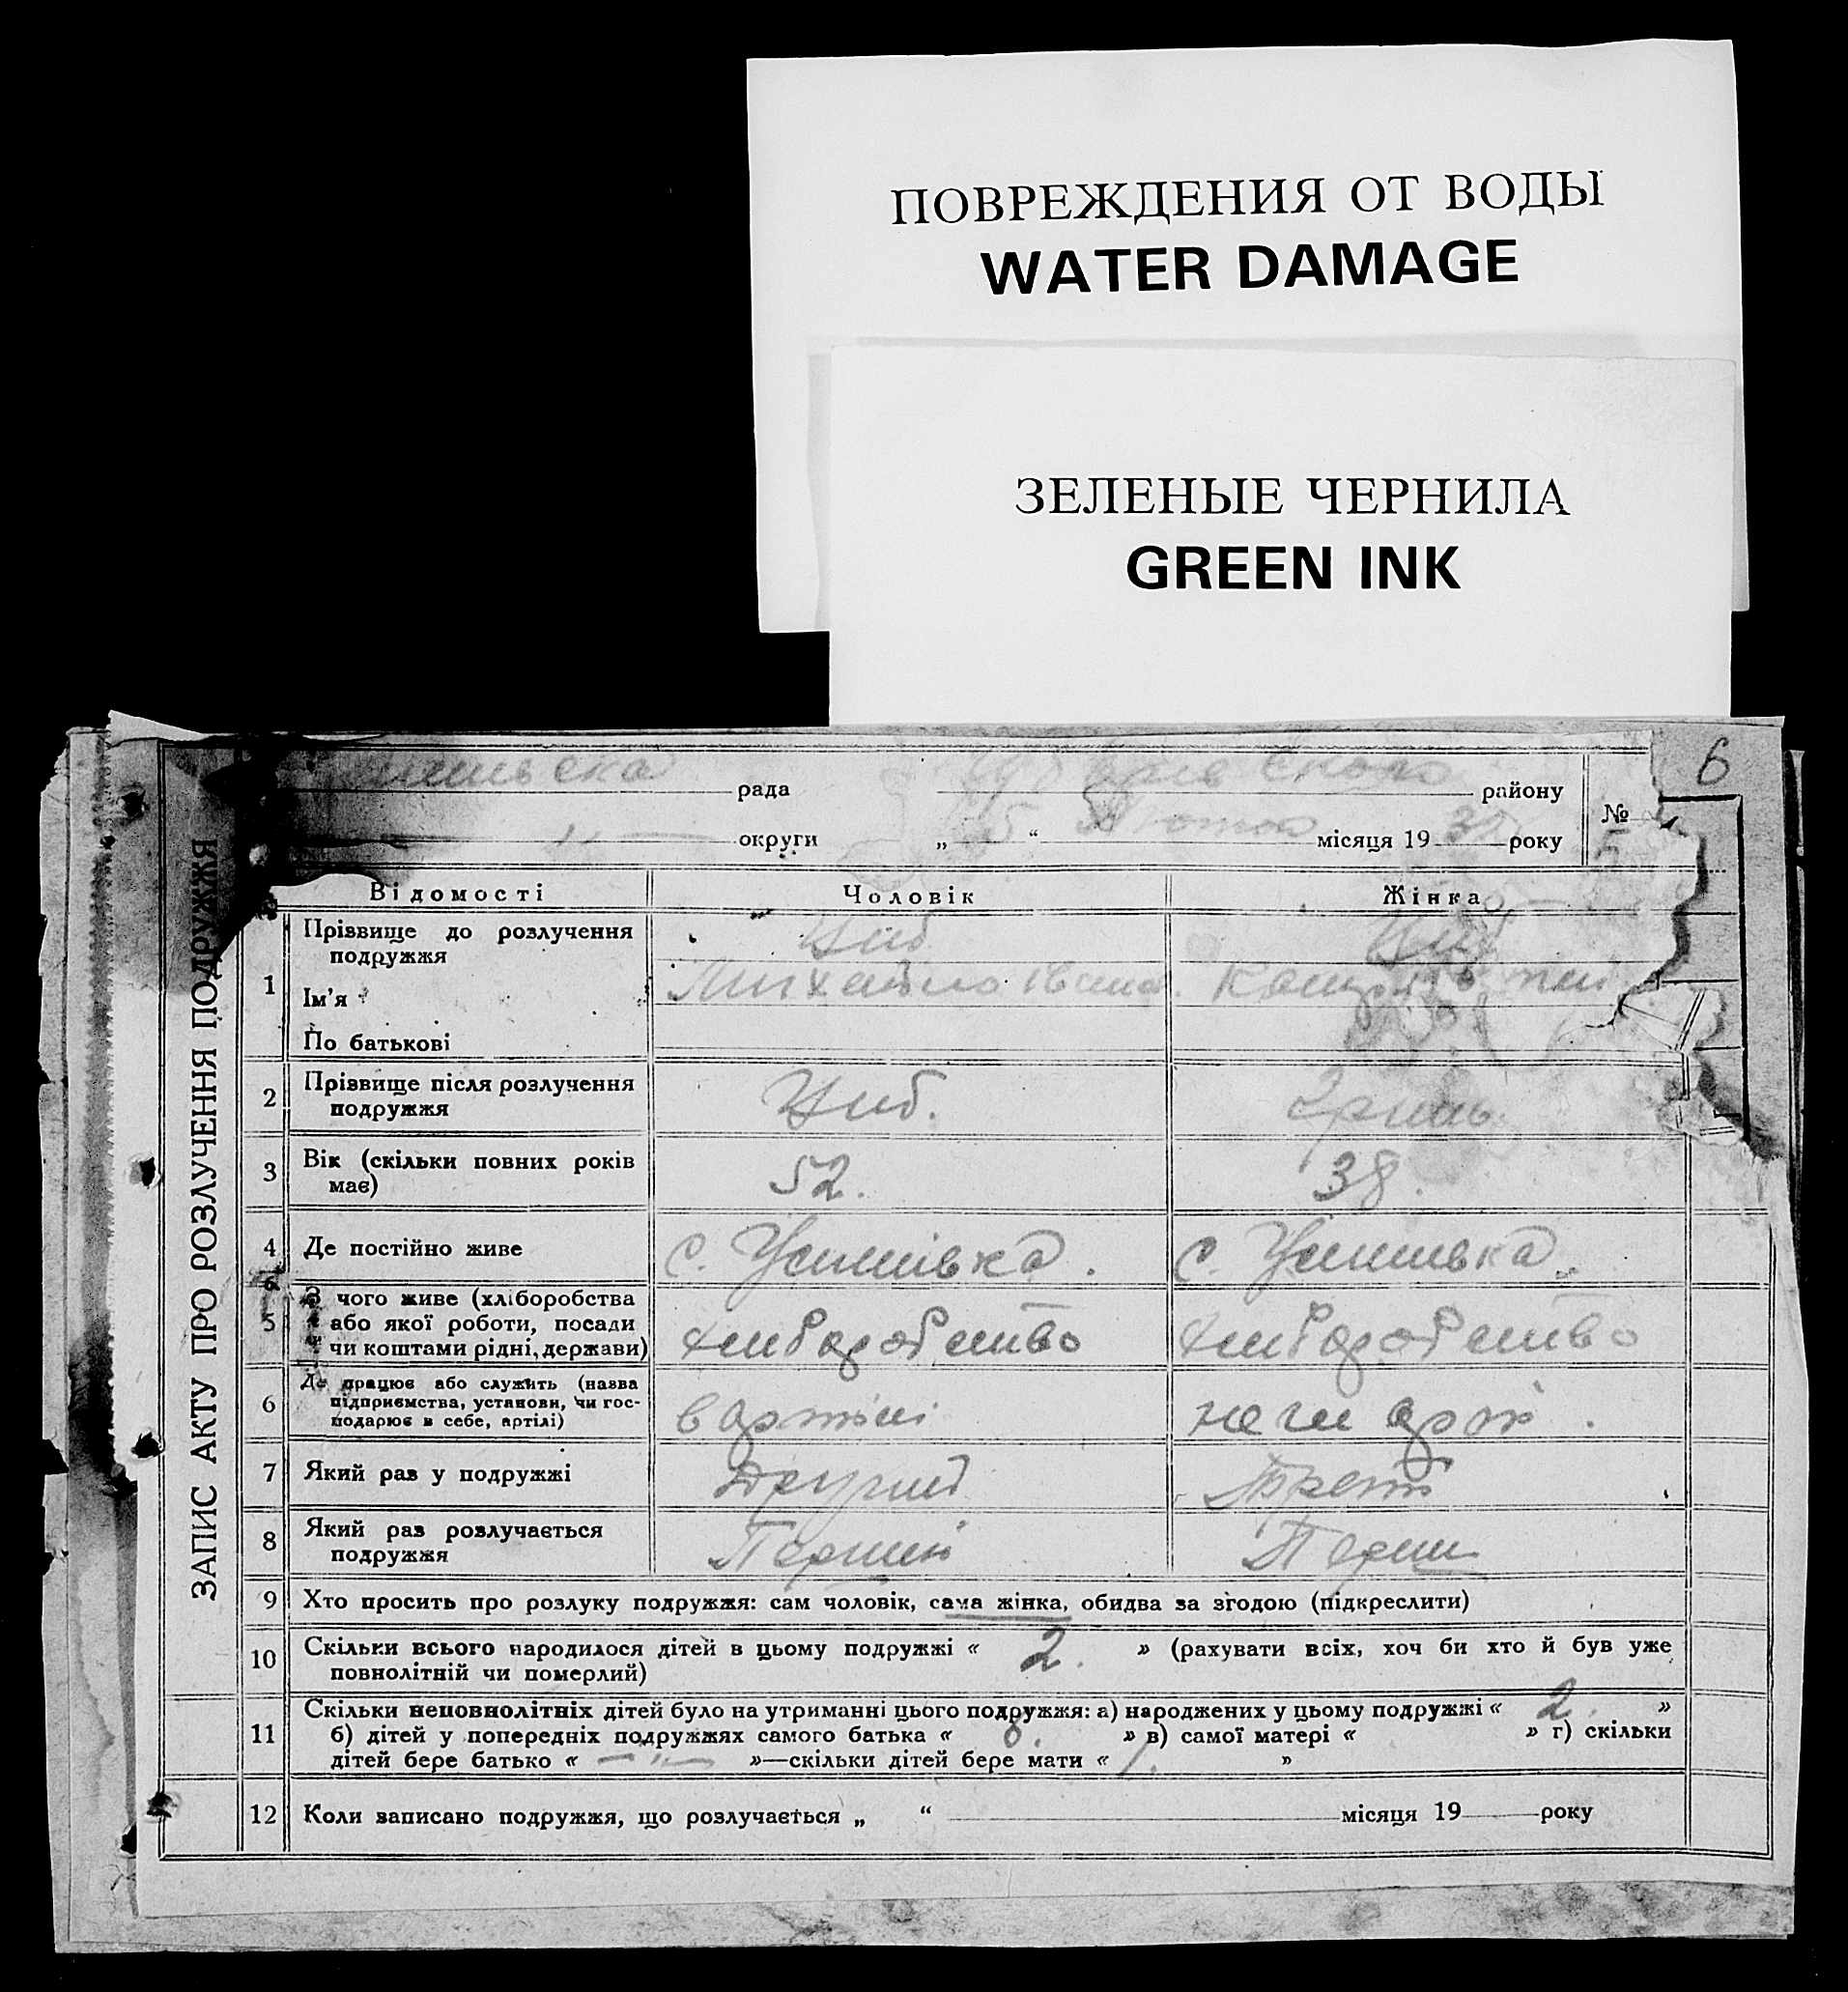 ПОВРЕЖДЕНИЯ ОТ ВОДЫ
WATER DAMAGE
ЗЕЛЕНЫЕ ЧЕРНИЛА
GREEN INK
6
рада району
№
округи „ 5 “ Лютого місяця 19 32 року 5
ЗАПИС АКТУ ПРО РОЗЛУЧЕННЯ ПОДРУЖЖЯ
Відомості Чоловік Жінка
1 Прізвище до розлучення Циб Циб
подружжя
Ім'я Михайло Івано.
По батькові
2 Прізвище після розлучення Циб.
подружжя
3 Вік (скільки повних років 52. 38.
має)
4 Де постійно живе с. Усишівка. с. Усишівка.
5 З чого живе (хліборобства
або якої роботи, посади хліборобство хліборобство
чи коштами рідні, держави)
6 Де працює або служить (назва
підприємства, установи, чи гос- в артілі
подарює в себе, артілі)
7 Який раз у подружжі Другий Трет
8 Який раз розлучається Перший Перши
подружжя
9 Хто просить про розлуку подружжя: сам чоловік, сама жінка, обидва за згодою (підкреслити)
10 Скільки всього народилося дітей в цьому подружжі « 2. » (рахувати всіх, хоч би хто й був уже
повнолітній чи померлий)
11 Скільки неповнолітніх дітей було на утриманні цього подружжя: а) народжених у цьому подружжі « 2. »
б) дітей у попередніх подружжях самого батька « » в) самої матері « » г) скільки
дітей бере батько « — " — »—скільки дітей бере мати « 1. »
12 Коли записано подружжя, що розлучається „ “ місяця 19 року